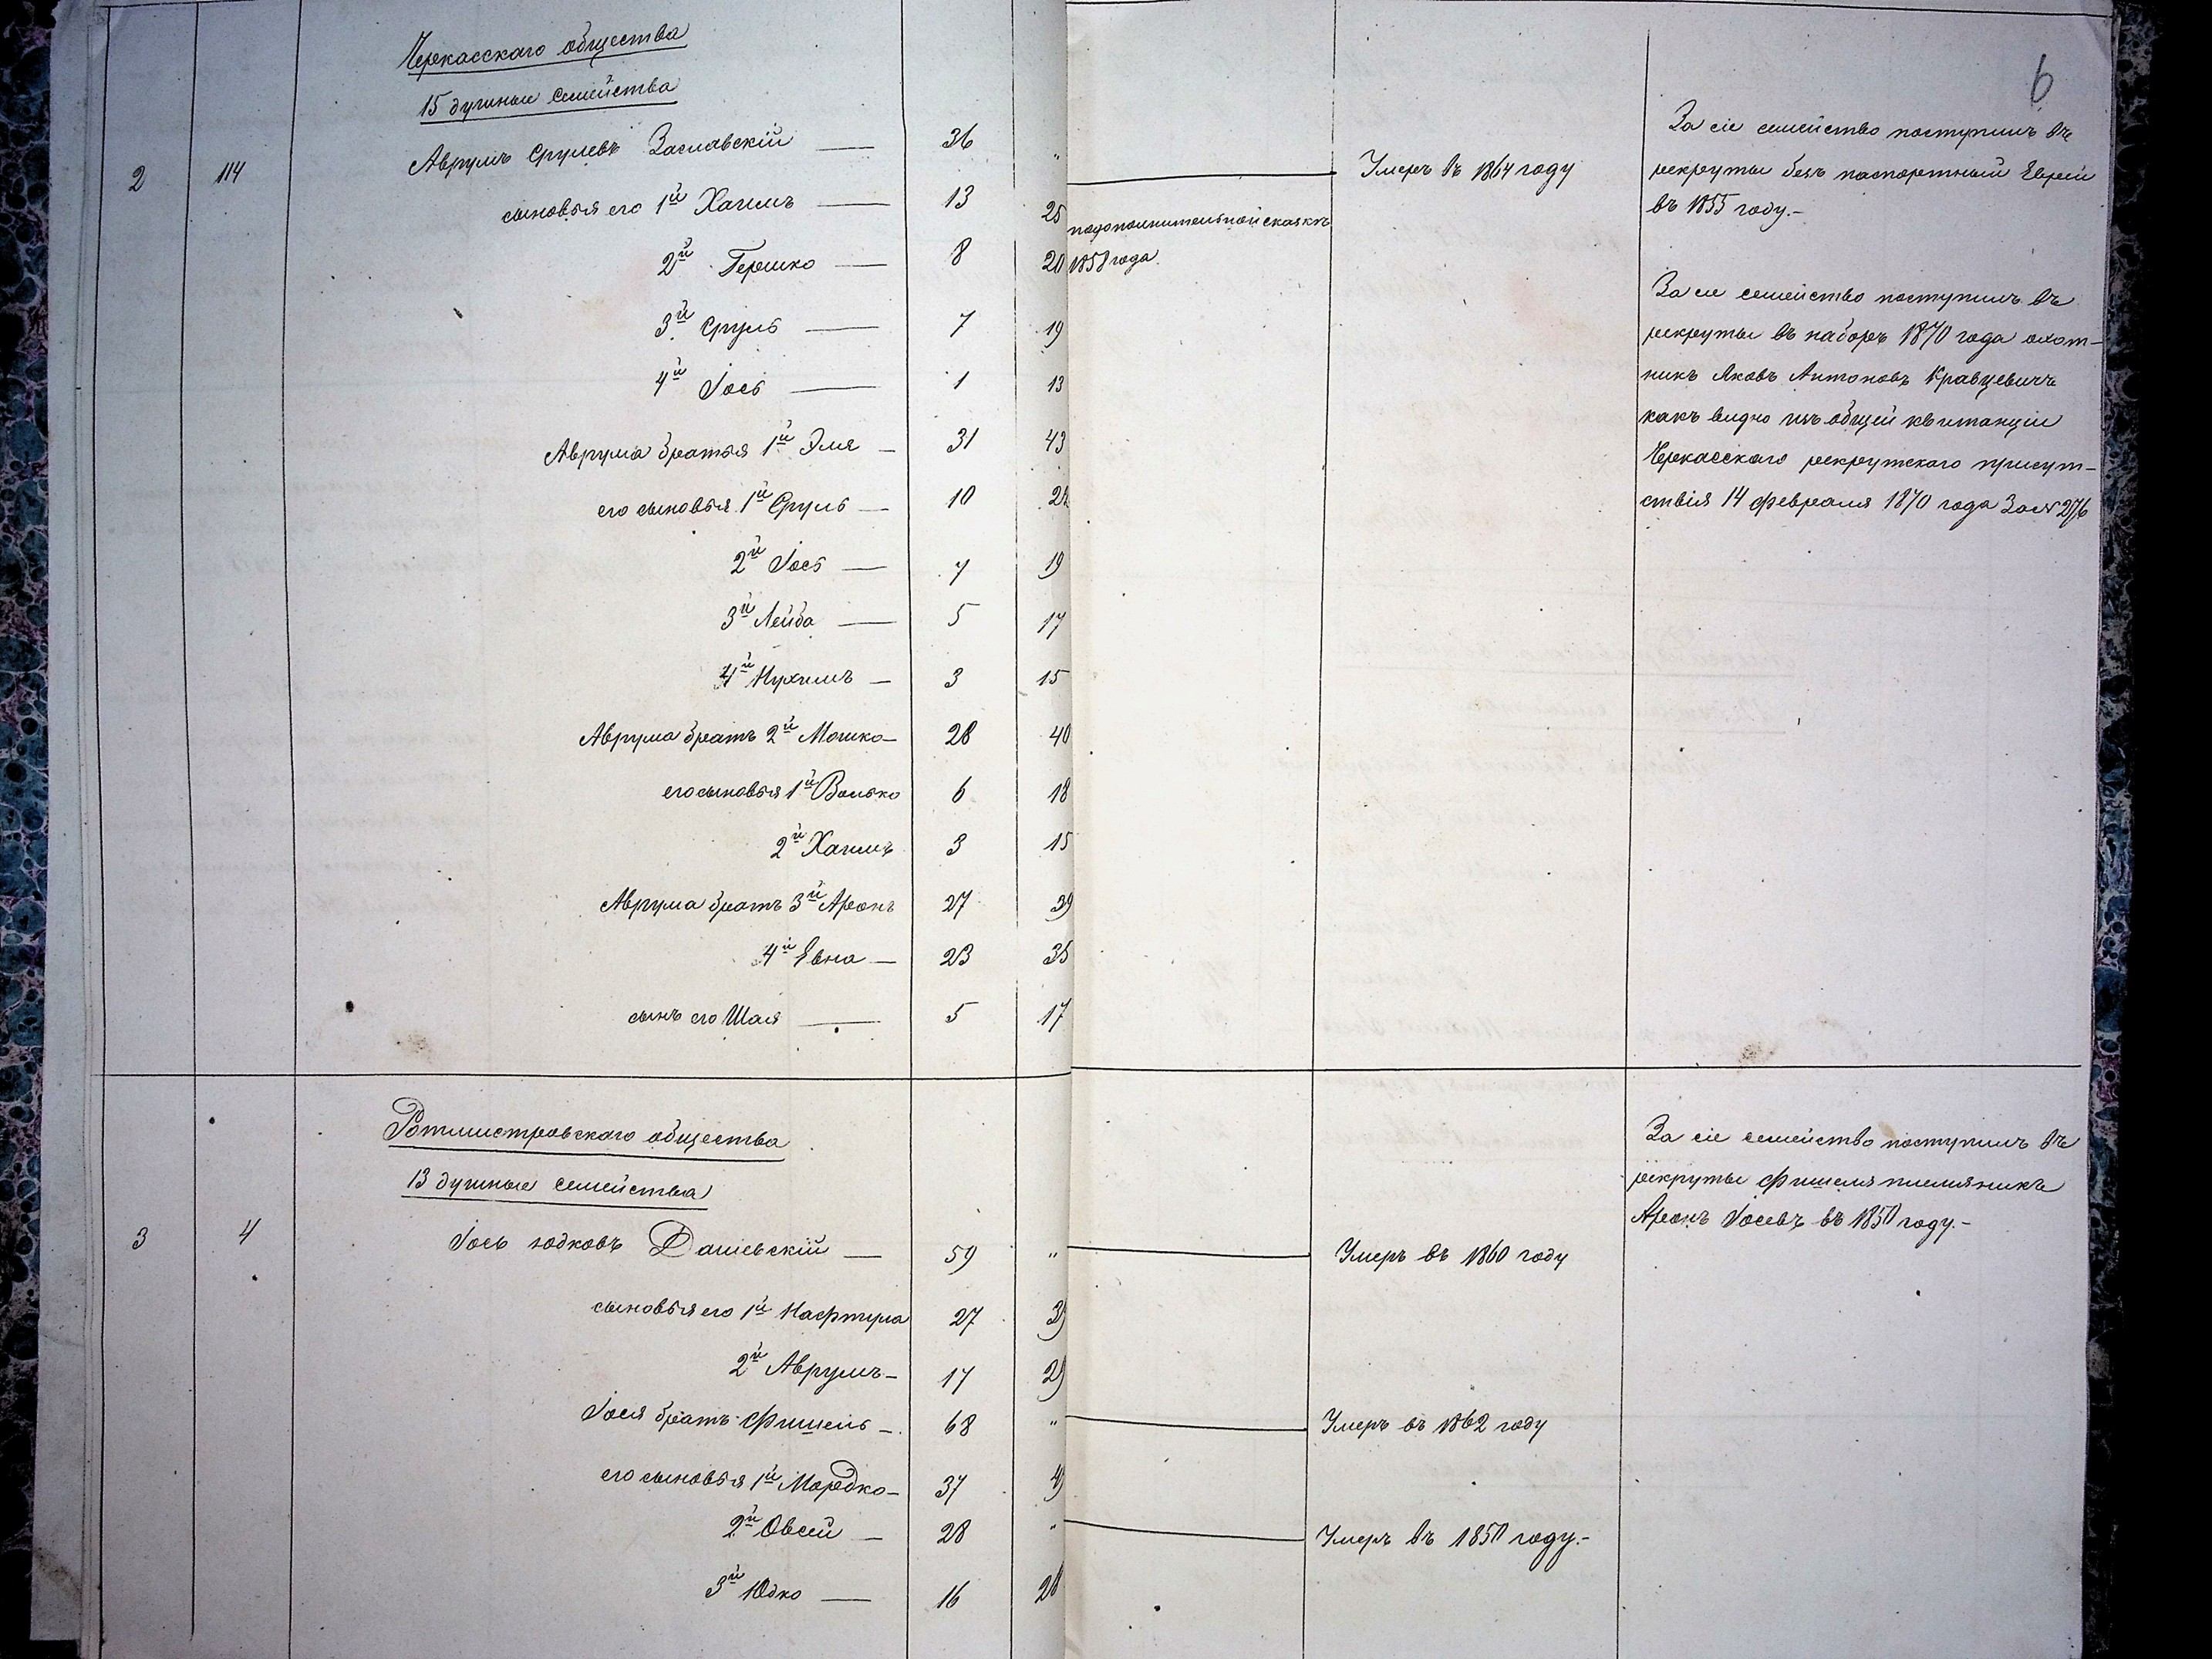 6
Черкасскаго общества
15 душные семейства
2 114 Аврумъ Срулевъ Заславскій — 36 „ — Умеръ въ 1864 году
сыновья его 1й Хаимъ — 13 25 по дополнительной сказкѣ
2й Гершко — 8 20 1858 года
3й Сруль — 7 19
4й Іось — 1 13
Аврума братья 1й Эля — 31 43
его сыновья 1й Сруль — 10 22
2й Іось — 7 19
3й Лейба — 5 17
4й Нухимъ — 3 15
Аврума братъ 2й Мошко — 28 40
его сыновья 1й Волько 6 18
2й Хаимъ 3 15
Аврума братъ 3й Аронъ 27 39
4й Евна — 23 35
сынъ его Шая — 5 17
За сіе семейство поступилъ въ
рекруты безъ паспортный Еврей
въ 1855 году.-
За сіе семейство поступилъ въ
рекруты въ наборъ 1870 года охот-
никъ Яковъ Антоновъ Кравцевичъ
какъ видно изъ общей квитанціи
Черкасскаго рекрутскаго присут-
ствія 14 февраля 1870 года За № 276
Ротмистровскаго общества
13 душные семейства
3 4 Іось Юдковъ Дашевскій — 59 „ — Умеръ въ 1860 году
сыновья его 1й Нафтула 27 39
2й Аврумъ — 17 29
Іося братъ Фишель — 68 „ — Умеръ въ 1862 году
его сыновья 1й Мордко — 37 49
2й Овсей — 28 „ — Умеръ въ 1858 году.-
3й Юдко — 16 28
За сіе семейство поступилъ въ
рекруты Фишеля племяникъ
Аронъ Іосевъ въ 1850 году.-